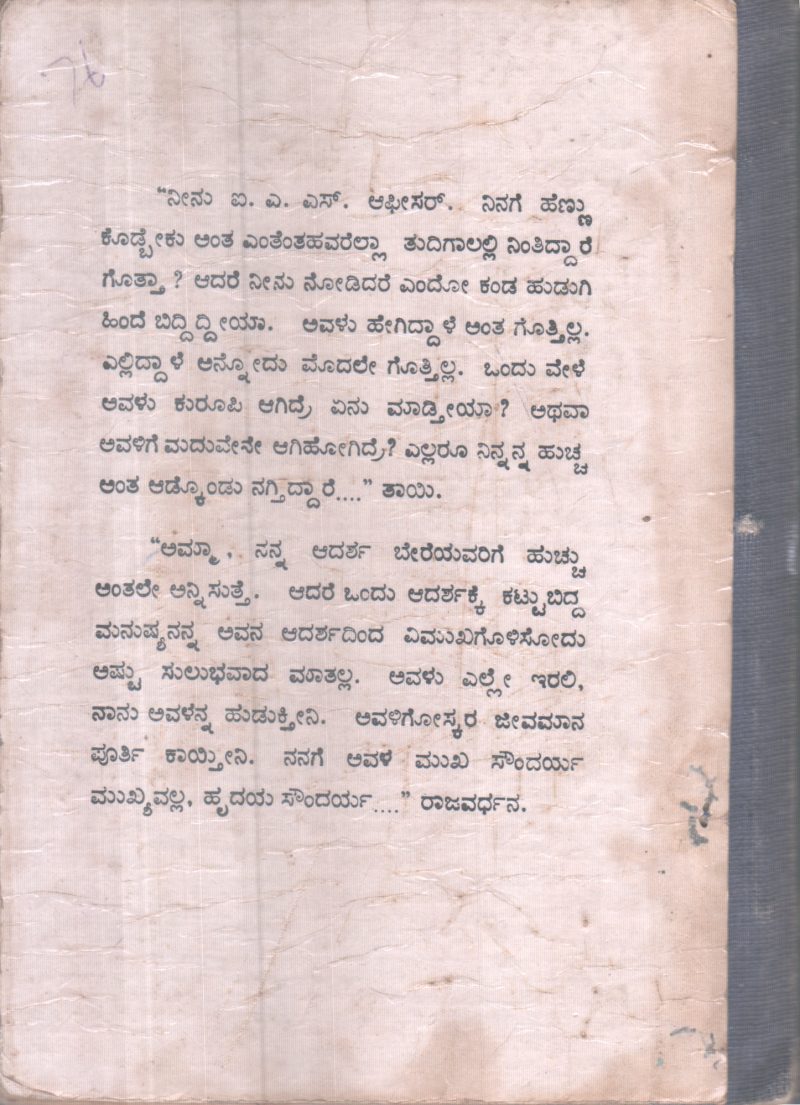 “ನೀನು ಐ. ಎ. ಎಸ್. ಆಫೀಸರ್. ನಿನಗೆ ಹೆಣ್ಣು
ಕೊಡ್ಬೇಕು ಅಂತ ಎಂತೆಂತಹವರೆಲ್ಲಾ ತುದಿಗಾಲಲ್ಲಿ ನಿಂತಿದ್ದಾರೆ
ಗೊತ್ತಾ? ಆದರೆ ನೀನು ನೋಡಿದರೆ ಎಂದೋ ಕಂಡ ಹುಡುಗಿ
ಹಿಂದೆ ಬಿದ್ದಿದ್ದೀಯಾ. ಅವಳು ಹೇಗಿದ್ದಾಳೆ ಅಂತ ಗೊತ್ತಿಲ್ಲ.
ಎಲ್ಲಿದ್ದಾಳೆ ಅನ್ನೋದು ಮೊದಲೇ ಗೊತ್ತಿಲ್ಲ. ಒಂದು ವೇಳೆ
ಅವಳು ಕುರೂಪಿ ಆಗಿದ್ರೆ ಏನು ಮಾಡ್ತೀಯಾ? ಅಥವಾ
ಅವಳಿಗೆ ಮದುವೇನೇ ಆಗಿಹೋಗಿದ್ರೆ? ಎಲ್ಲರೂ ನಿನ್ನನ್ನ ಹುಚ್ಚ
ಅಂತ ಆಡ್ಕೊಂಡು ನಗ್ತಿದ್ದಾರೆ....” ತಾಯಿ.
“ಅಮ್ಮಾ, ನನ್ನ ಆದರ್ಶ ಬೇರೆಯವರಿಗೆ ಹುಚ್ಚು
ಅಂತಲೇ ಅನ್ನಿಸುತ್ತೆ. ಆದರೆ ಒಂದು ಆದರ್ಶಕ್ಕೆ ಕಟ್ಟುಬಿದ್ದ
ಮನುಷ್ಯನನ್ನ ಅವನ ಆದರ್ಶದಿಂದ ವಿಮುಖಗೊಳಿಸೋದು
ಅಷ್ಟು ಸುಲುಭವಾದ ಮಾತಲ್ಲ. ಅವಳು ಎಲ್ಲೇ ಇರಲಿ,
ನಾನು ಅವಳನ್ನ ಹುಡುಕ್ತೀನಿ. ಅವಳಿಗೋಸ್ಕರ ಜೀವಮಾನ
ಪೂರ್ತಿ ಕಾಯ್ತೀನಿ. ನನಗೆ ಅವಳ ಮುಖ ಸೌಂದರ್ಯ
ಮುಖ್ಯವಲ್ಲ, ಹೃದಯ ಸೌಂದರ್ಯ....” ರಾಜವರ್ಧನ.